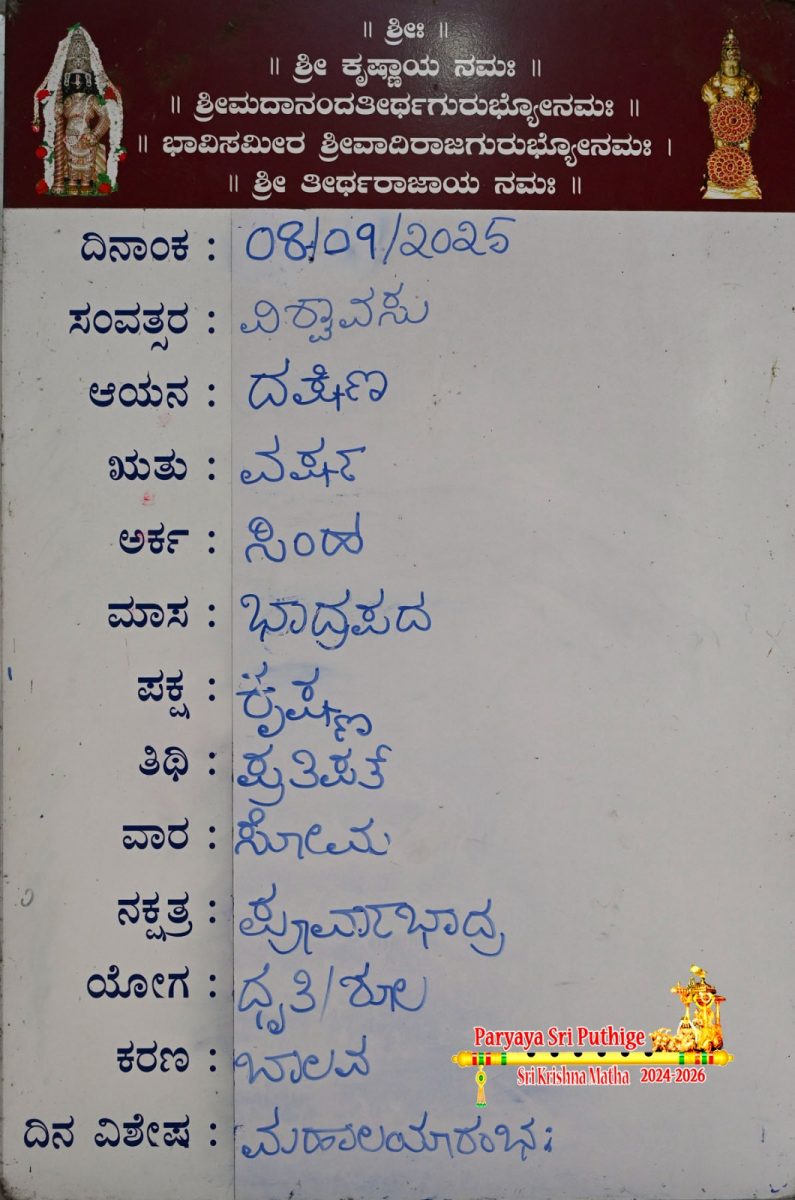 ॥ ಶ್ರೀಃ ॥
॥ ಶ್ರೀ ಕೃಷ್ಣಾಯ ನಮಃ ॥
॥ ಶ್ರೀಮದಾನಂದತೀರ್ಥಗುರುಭ್ಯೋನಮಃ ॥
॥ ಭಾವಿಸಮೀರ ಶ್ರೀವಾದಿರಾಜಗುರುಭ್ಯೋನಮಃ ।
॥ ಶ್ರೀ ತೀರ್ಥರಾಜಾಯ ನಮಃ ॥
ದಿನಾಂಕ : 08/09/2025
ಸಂವತ್ಸರ : ವಿಶ್ವಾವಸು
ಆಯನ : ದಕ್ಷಿಣ
ಋತು : ವರ್ಷ
ಅರ್ಕ : ಸಿಂಹ
ಮಾಸ : ಭಾದ್ರಪದ
ಪಕ್ಷ : ಕೃಷ್ಣ
ತಿಥಿ : ಪ್ರತಿಪತ್
ವಾರ : ಸೋಮ
ನಕ್ಷತ್ರ : ಪೂರ್ವಾಭಾದ್ರ
ಯೋಗ : ಧೃತಿ/ಶೂಲ
ಕರಣ : ಬಾಲವ
ದಿನ ವಿಶೇಷ : ಮಹಾಲಯಾರಂಭ:
Paryaya Sri Puthige
Sri Krishna Matha 2024-2026